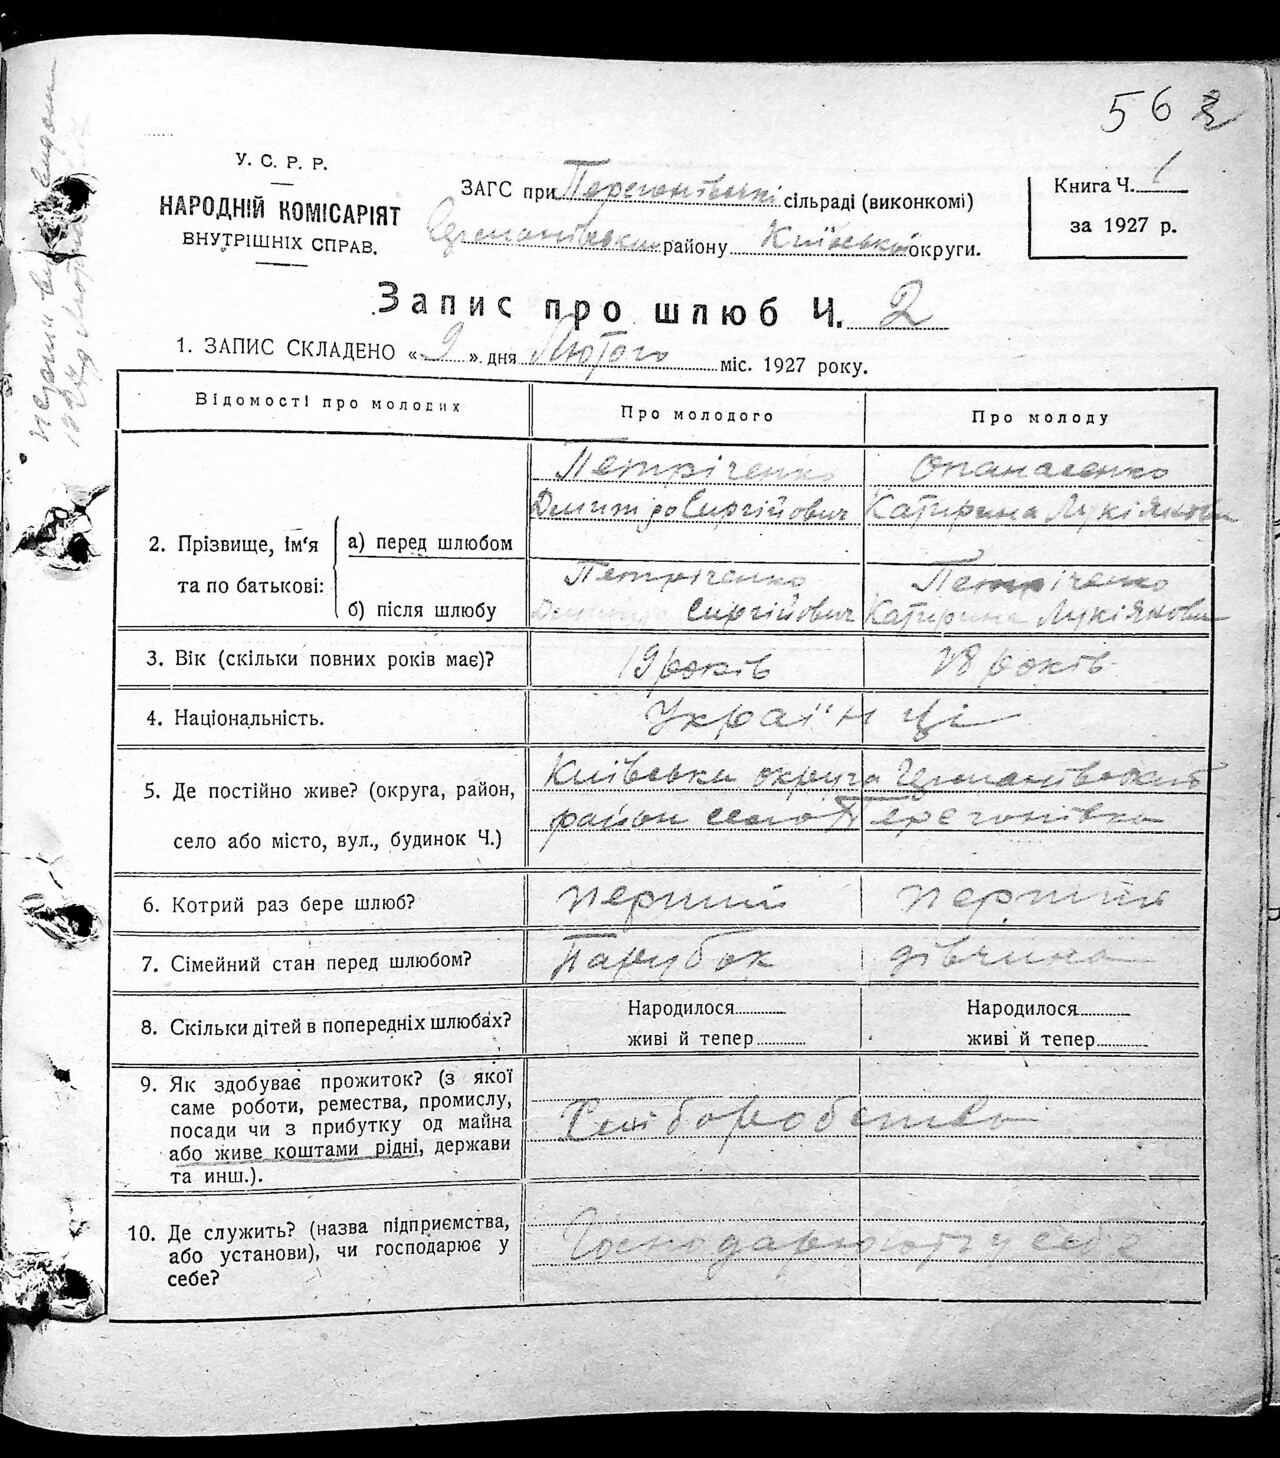 562
У. С. Р. Р.
НАРОДНІЙ КОМІСАРІЯТ
ВНУТРІШНІХ СПРАВ.
ЗАГС при Перегонівські сільраді (виконкомі)
району Київської округи.
Книга Ч. 1
за 1927 р.
Запис про шлюб Ч. 2
1. ЗАПИС СКЛАДЕНО «9» дня Лютого міс. 1927 року.
Відомості про молодих
Про молодого
Про молоду
2. Прізвище, ім'я та по батькові:
а) перед шлюбом
Петріченко
Дмитро Сиргійович
Опанасенко
Катирина Лукіяновн
б) після шлюбу
Петріченко
Дмитро Сиргійович
Петріченко
Катирина Лукіяновн
3. Вік (скільки повних років має)?
19 років
28 років
4. Національність.
Українці
5. Де постійно живе? (округа, район,
село або місто, вул., будинок Ч.)
Київська округа
район село Перегонівка
6. Котрий раз бере шлюб?
перший
перший
7. Сімейний стан перед шлюбом?
Парубок
дівчина
8. Скільки дітей в попередніх шлюбах?
Народилося
живі й тепер
Народилося
живі й тепер
9. Як здобуває прожиток? (з якої
саме роботи, ремества, промислу,
посади чи з прибутку од майна
або живе коштами рідні, держави
та инш.).
Хліборобство
10. Де служить? (назва підприємства,
або установи), чи господарює у
себе?
Господарюють у себе